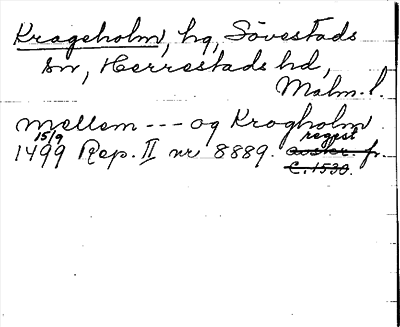 Krageholm, hg, Sövestads
sn, Herrestads hd,
Malm. l.
mellem --- og Krogholm
15/9 regest
1499 Rep. II nr 8889. avskr. fr.
C. 1530.